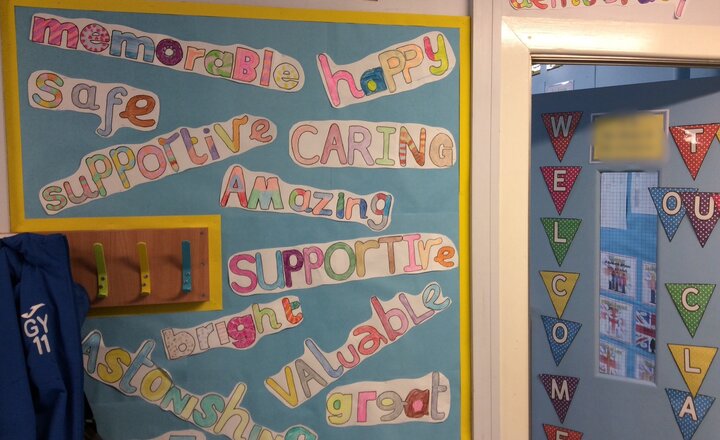 memorable
happy
safe
supportive
CARING
Amazing
SUPPORTIve
bright
vAluabLe
Astonishing
great
GY
11
democracy
WELCOME
TO
OU
CLA